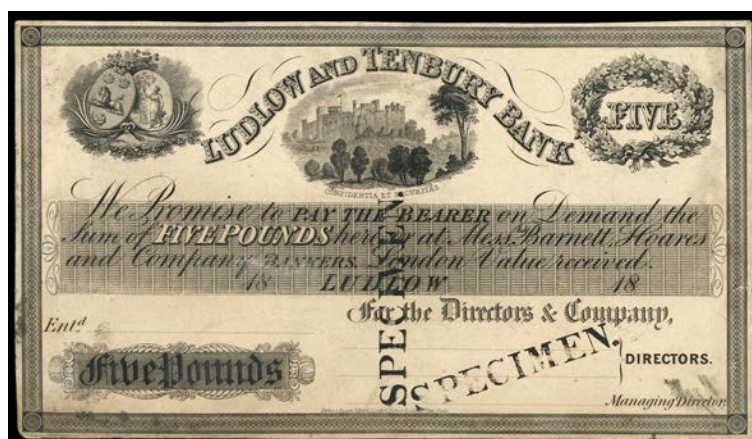 LUDLOW AND TENBURY BANK
FIVE
CONFIDENTIA ET SECURITAS
We Promise to PAY THE BEARER on Demand the
Sum of FIVE POUNDS here or at Mess.rs Barnett, Hoares
and Company BANKERS London Value received.
18 LUDLOW 18
For the Directors & Company,
Entd
SPECIMEN
SPECIMEN.
DIRECTORS.
Five Pounds
Managing Director.